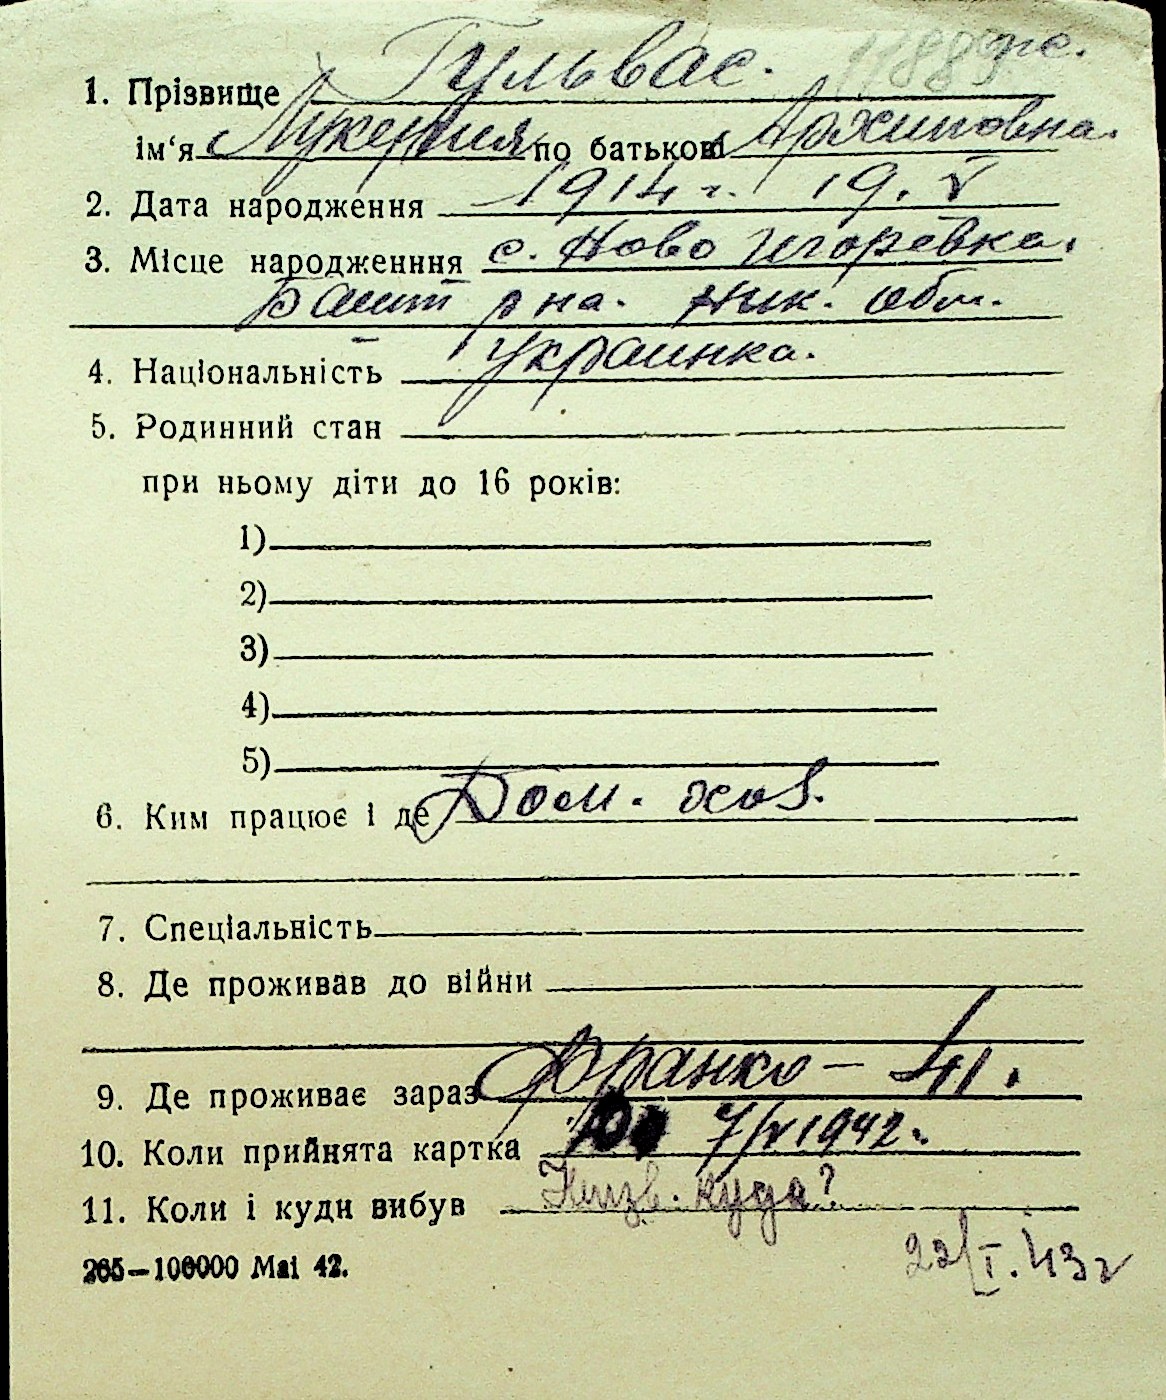 1. Прізвище Гульвас.
ім‘я Лукерия по батькові Архиповна.
2. Дата народження 1914 г. 19. V
3. Місце народженння с. Ново Игоревка.
Башт р на. Ник. обл.
4. Національність Украинка.
5. Родинний стан
при ньому діти до 16 років:
1)
2)
3)
4)
5)
6. Ким працює і де Дом. хоз.
7. Спеціальність
8. Де проживав до війни
9. Де проживає зараз Франко – 41.
10. Коли прийнята картка 7/V 1942г.
11. Коли і куди вибув куда?
22/I. 43 г
265—100000 Маі 42.